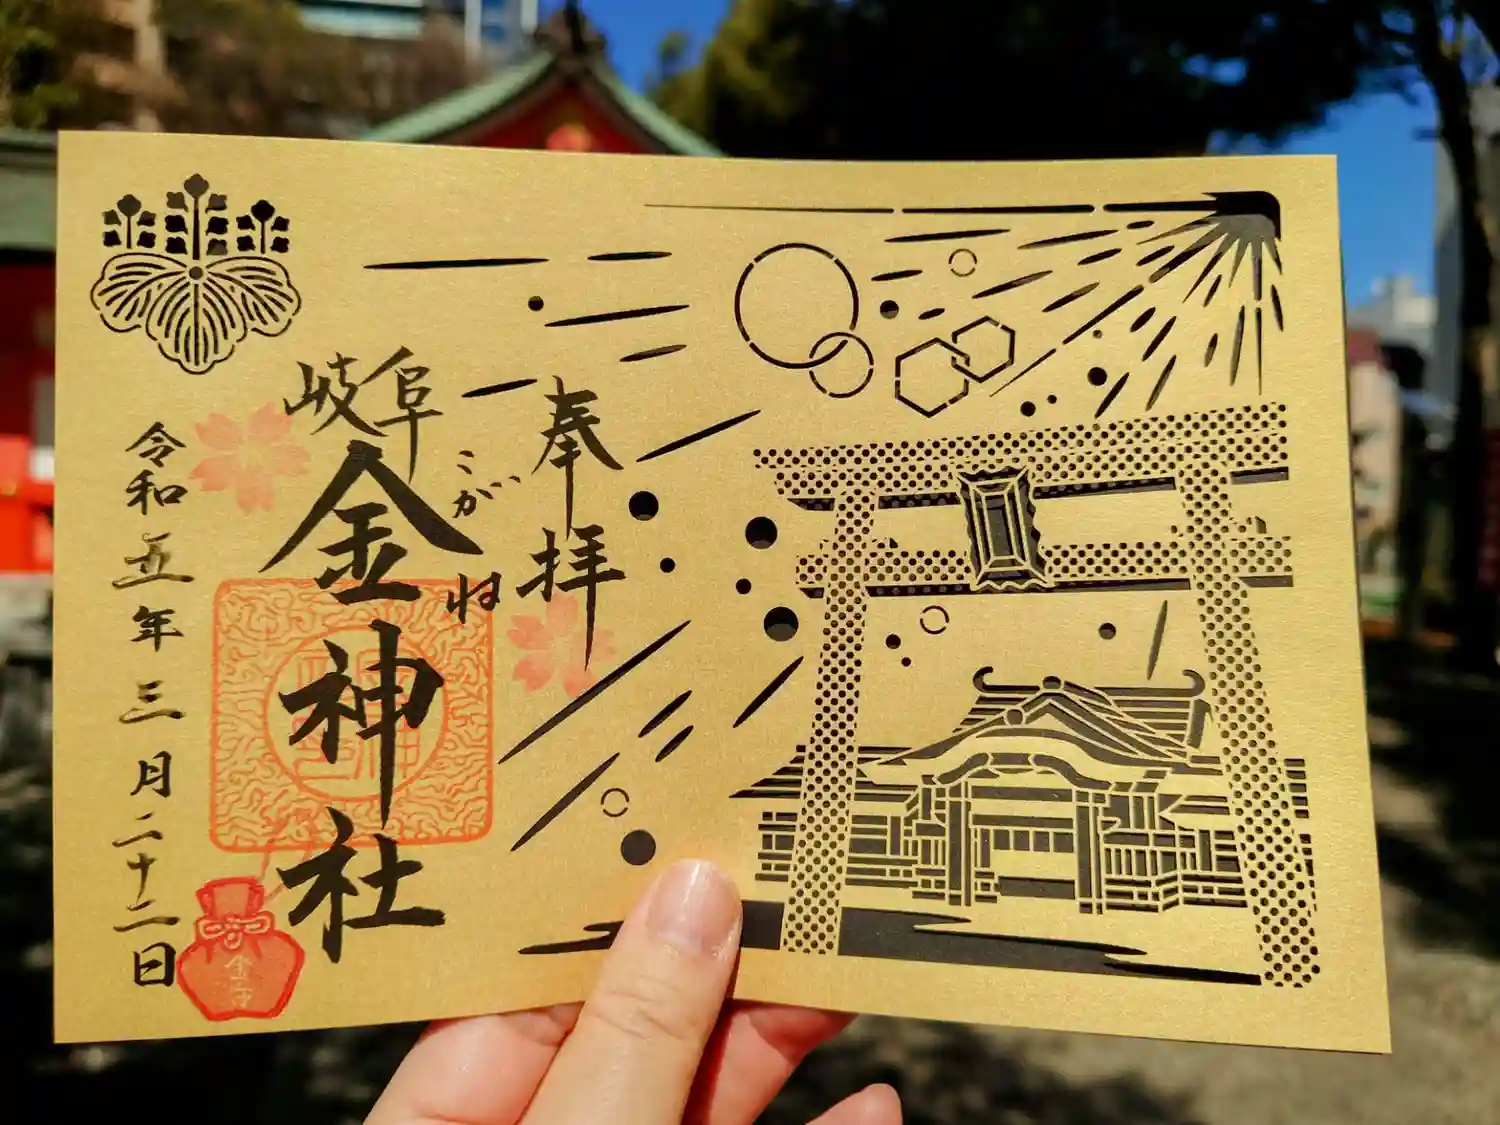 奉拝
岐阜
金神社
こがね
令和五年三月二十二日
金守